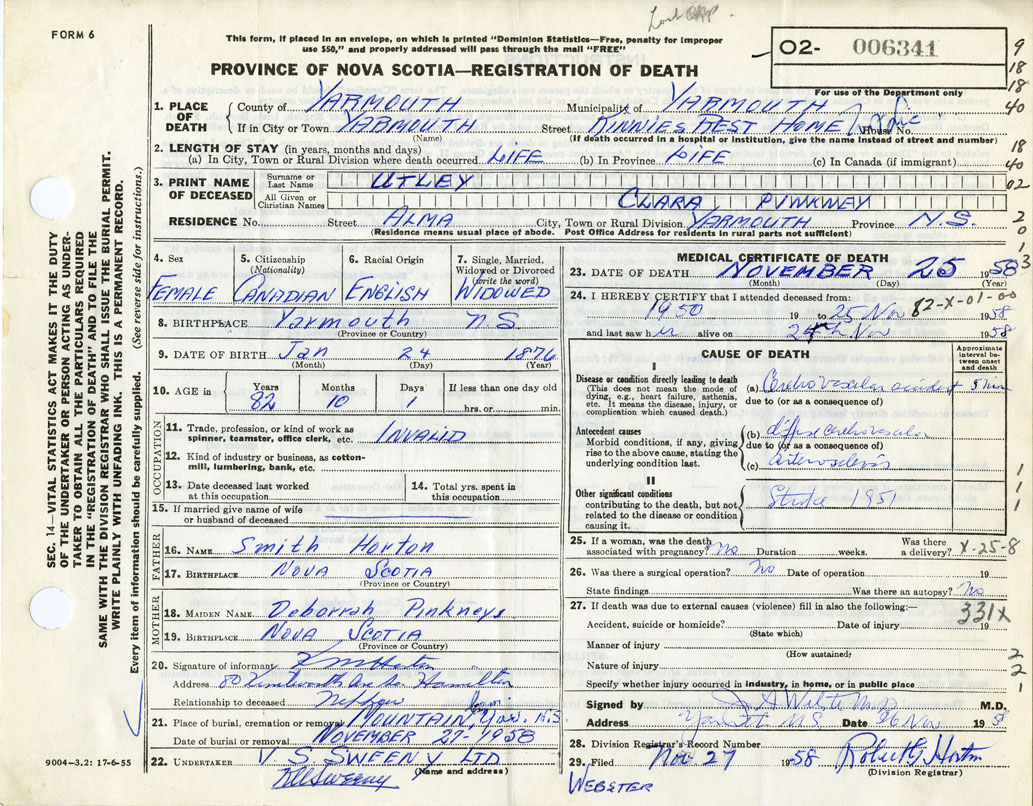 FORM 6
This form, if placed in an envelope, on which is printed "Dominion Statistics—Free, penalty for improper
use $50," and properly addressed will pass through the mail "FREE"
PROVINCE OF NOVA SCOTIA—REGISTRATION OF DEATH
02- 006341
For use of the Department only
9
18
18
40
18
40
02
2
0
1
3
SEC. 14—VITAL STATISTICS ACT MAKES IT THE DUTY
OF THE UNDERTAKER OR PERSON ACTING AS UNDER-
TAKER TO OBTAIN ALL THE PARTICULARS REQUIRED
IN THE "REGISTRATION OF DEATH" AND TO FILE THE
SAME WITH THE DIVISION REGISTRAR WHO SHALL ISSUE THE BURIAL PERMIT.
WRITE PLAINLY WITH UNFADING INK. THIS IS A PERMANENT RECORD.
Every item of information should be carefully supplied. (See reverse side for instructions.)
1. PLACE OF DEATH
County of YARMOUTH Municipality of YARMOUTH
If in City or Town YARMOUTH Street KINNIES REST HOME House No.
(Name) (If death occurred in a hospital or institution, give the name instead of street and number)
2. LENGTH OF STAY (in years, months and days)
(a) In City, Town or Rural Division where death occurred LIFE (b) In Province LIFE (c) In Canada (if immigrant)
3. PRINT NAME OF DECEASED
Surname or Last Name UTLEY
All Given or Christian Names CLARA PINKNEY
RESIDENCE No. Street ALMA City, Town or Rural Division YARMOUTH Province N.S.
(Residence means usual place of abode. Post Office Address for residents in rural parts not sufficient)
4. Sex
FEMALE
5. Citizenship (Nationality)
CANADIAN
6. Racial Origin
ENGLISH
7. Single, Married, Widowed or Divorced (write the word)
WIDOWED
8. BIRTHPLACE Yarmouth N.S.
(Province or Country)
9. DATE OF BIRTH Jan 24 1876
(Month) (Day) (Year)
10. AGE in Years Months Days If less than one day old
82 10 1 hrs. or min.
OCCUPATION
11. Trade, profession, or kind of work as
spinner, teamster, office clerk, etc. INVALID
12. Kind of industry or business, as cotton-
mill, lumbering, bank, etc.
13. Date deceased last worked
at this occupation
14. Total yrs. spent in
this occupation
15. If married give name of wife
or husband of deceased
FATHER
16. NAME Smith Horton
17. BIRTHPLACE NOVA SCOTIA
(Province or Country)
MOTHER
18. MAIDEN NAME Deborrah Pinkneys
19. BIRTHPLACE NOVA SCOTIA
(Province or Country)
20. Signature of informant
Address 80 Kenilworth Hamilton
Relationship to deceased Nephew
21. Place of burial, cremation or removal MOUNTAIN, Yar. N.S.
Date of burial or removal NOVEMBER 27-1958
22. UNDERTAKER V S. SWEENY LTD
(Name and address)
9004—3.2: 17-6-55
MEDICAL CERTIFICATE OF DEATH
23. DATE OF DEATH NOVEMBER 25 1958
(Month) (Day) (Year)
24. I HEREBY CERTIFY that I attended deceased from:
1950 19 to 25 Nov 1958
82-X-01-00
and last saw her alive on 24th Nov 1958
CAUSE OF DEATH
Approximate interval between onset and death
I
Disease or condition directly leading to death
(This does not mean the mode of
dying, e.g., heart failure, asthenia,
etc. It means the disease, injury, or
complication which caused death.)
(a) Cerebrovascular accident 5 min
due to (or as a consequence of)
Antecedent causes
Morbid conditions, if any, giving
rise to the above cause, stating the
underlying condition last.
(b) diffuse cerebrovascular
due to (or as a consequence of)
(c) arteriosclerosis
II
Other significant conditions
contributing to the death, but not
related to the disease or condition
causing it.
Stroke 1951
1
1
1
25. If a woman, was the death
associated with pregnancy? No Duration weeks. Was there a delivery? X-25-8
26. Was there a surgical operation? No Date of operation 19
State findings Was there an autopsy? No
27. If death was due to external causes (violence) fill in also the following:—
331X
Accident, suicide or homicide? Date of injury 19
(State which)
Manner of injury
(How sustained)
Nature of injury
2
2
1
Specify whether injury occurred in industry, in home, or in public place
Signed by M.D.
Address Yarmouth N.S. Date 26 Nov 1958
28. Division Registrar's Record Number
29. Filed Nov 27 1958 Robert G Horton
(Division Registrar)
WEBSTER